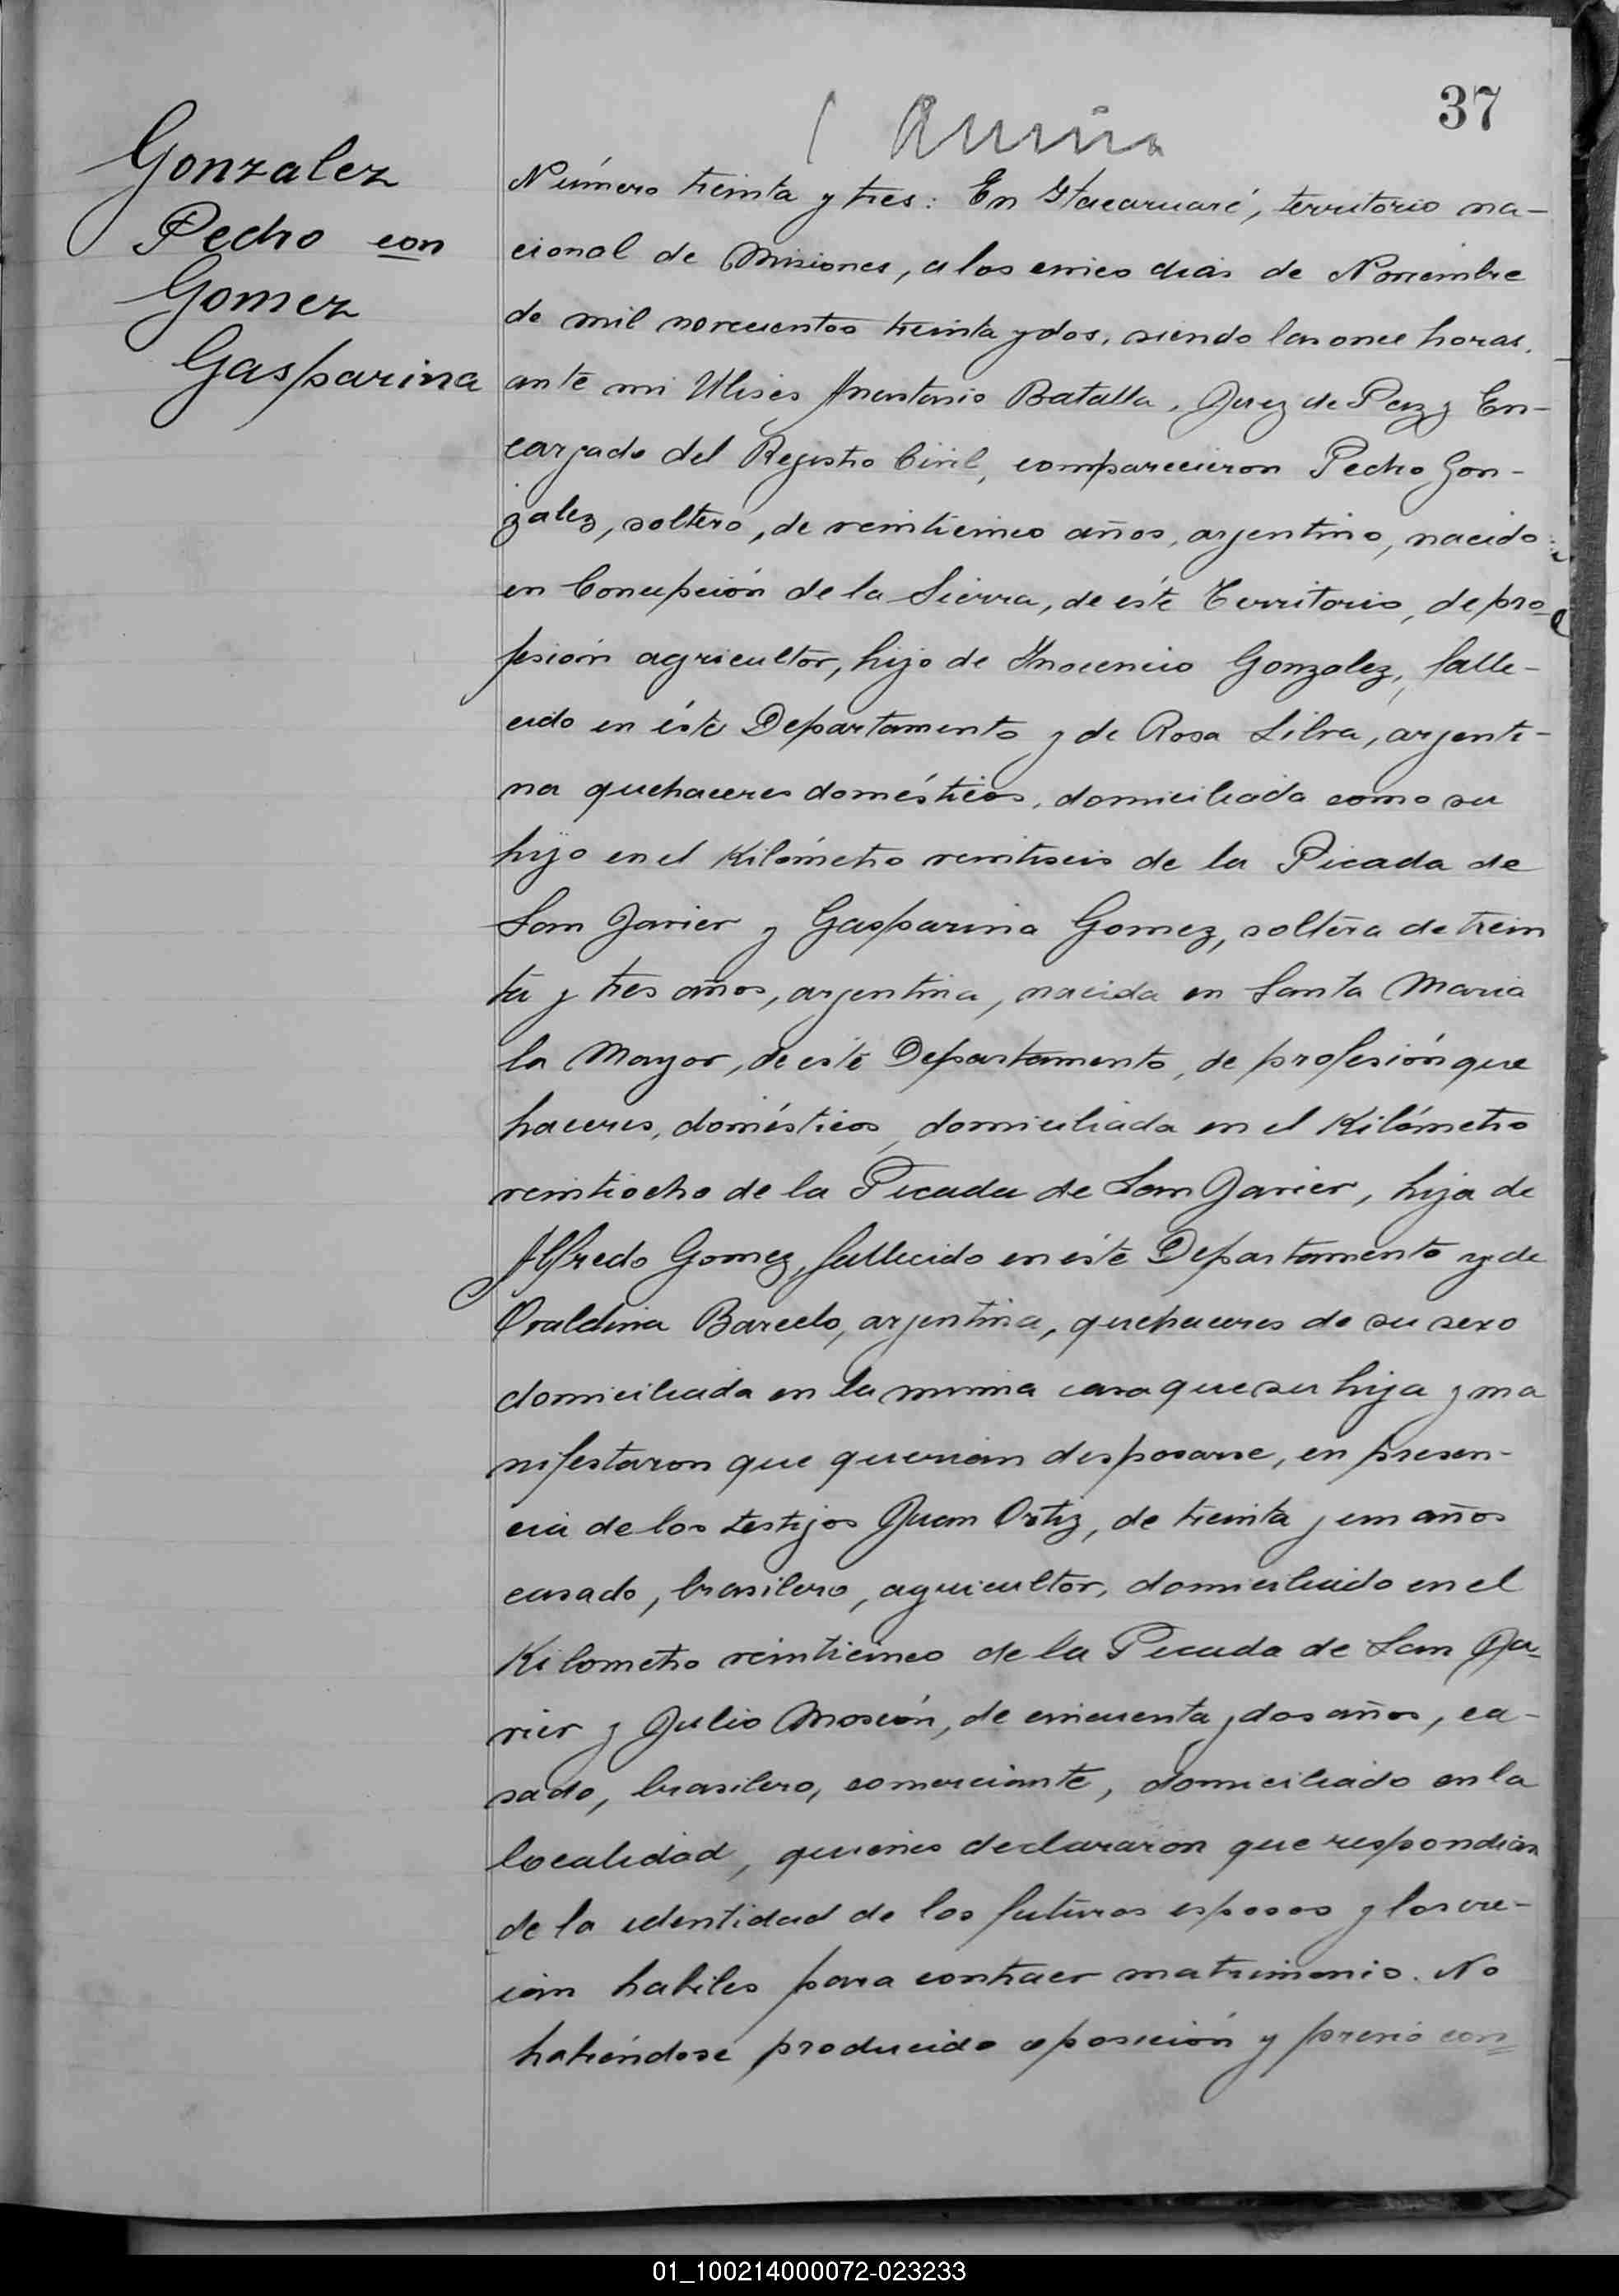 37
Gonzalez
Pedro con
Gomez
Gasparina
Número treinta y tres: En Itacaruaré, territorio na-
cional de Misiones, a los cinco dias de Noviembre
de mil novecientos treinta y dos, siendo las once horas,
ante mi Ulises Anastasio Batalla, Juez de Paz y En-
cargado del Registro Civil, comparecieron Pedro Gon-
zalez, soltero, de veinticinco años, argentino, nacido
en Concepción de la Sierra, de éste Territorio, de pro-
fesión agricultor, hijo de Inocencio Gonzalez, falle-
cido en éste Departamento y de Rosa Silva, argenti-
na quehaceres domésticos, domiciliada como su
hijo en el Kilómetro veintiseis de la Picada de
San Javier y Gasparina Gomez, soltera de trein
ta y tres años, argentina, nacida en Santa Maria
la Mayor, de éste Departamento, de profesión que
haceres, domésticos, domiciliada en el Kilómetro
veintiocho de la Picada de San Javier, hija de
Alfredo Gomez, fallecido en éste Departamento y de
Oraldina Barcelo, argentina, quehaceres de su sexo
domiciliada en la misma casa que su hija y ma
nifestaron que querian desposarse, en presen-
cia de los testigos Juan Ortiz, de treinta y un años
casado, brasilero, agricultor, domiciliado en el
Kilometro veinticinco de la Picada de San Ja-
vier y Julio Moscón, de cincuenta y dos años, ca-
sado, brasilero, comerciante, domiciliado en la
localidad, quienes declararon que respondian
de la identidad de los futuros esposos y los cre-
ian habiles para contraer matrimonio. No
habiéndose producido oposición y previo con=
01_100214000072-023233